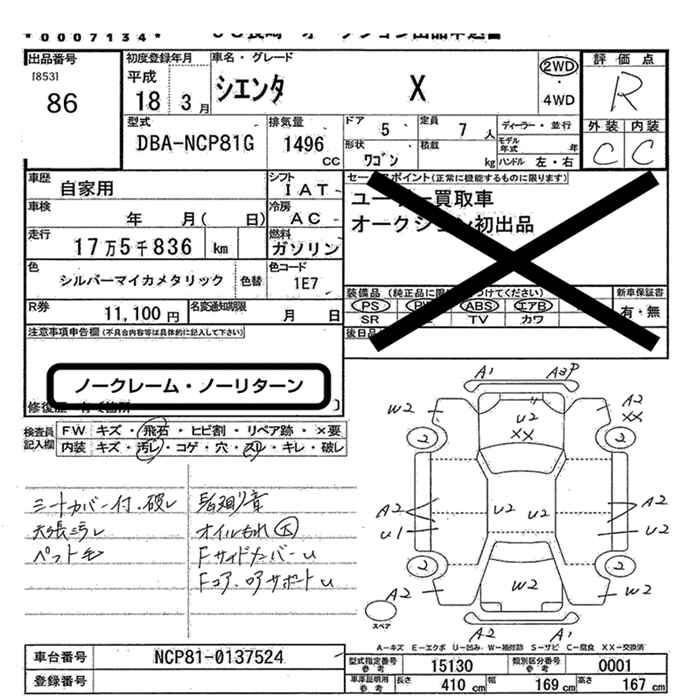 *0007134*
出品番号
[853]
86
初度登録年月
平成
18 3 月
車名・グレード
シエンタ X
2WD
・
4WD
評価点
R
外装 内装
C C
型式
DBA-NCP81G
排気量
1496
CC
ドア 5
定員 7 人
ディーラー・並行
形状
ワゴン
積載 kg
モデル年式 年
ハンドル 左・右
車歴
自家用
シフト
IAT
車検 年 月( 日)
冷房
AC
走行
17万5千836 km
燃料
ガソリン
色
シルバーマイカメタリック
色替
色コード
1E7
R券
11,100 円
名変通知期限
月 日
セールスポイント(正常に機能するものに限ります)
ユーザー買取車
オークション初出品
装備品
PS ABS エアB
SR TV カワ
新車保証書
有・無
注意事項申告欄(不具合内容等は具体的に記入して下さい)
ノークレーム・ノーリターン
検査員
記入欄
FW キズ・飛石・ヒビ割・リペア跡・×要
内装 キズ・汚レ・コゲ・穴・スレ・キレ・破レ
シートカバー付・破レ
天張汚レ
ペット毛
オイルもれ 大
FサイドメンバーU
Fコア・ロアサポートU
A1
W2
A2
XX
2
2
U2
XX
A2
U1
U2
U2
A2
U2
2
2
W2
A2
W2
A2
A1
スペア
A-キズ E-エクボ U-凹み W-補修跡 S-サビ C-腐食 XX-交換済
車台番号
NCP81-0137524
登録番号
型式指定番号
参考
15130
類別区分番号
参考
0001
車庫証明用
参考
長さ 410 cm 幅 169 cm 高さ 167 cm